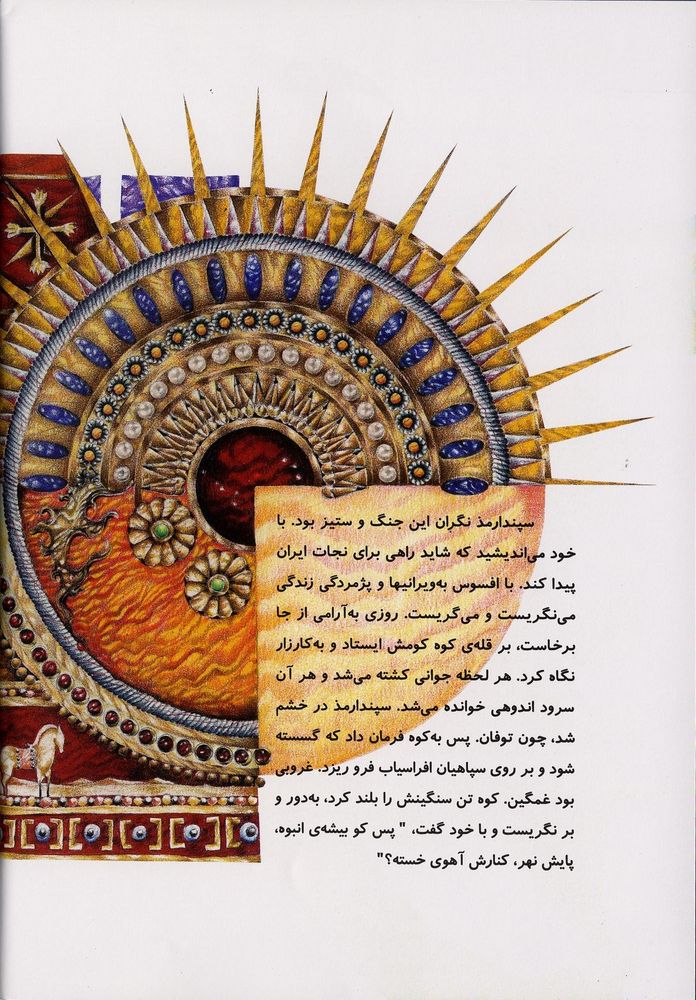 سپندارمذ نگران این جنگ و ستیز بود. با
خود می‌اندیشید که شاید راهی برای نجات ایران
پیدا کند. با افسوس به‌ویرانیها و پژمردگی زندگی
می‌نگریست و می‌گریست. روزی به‌آرامی از جا
برخاست، بر قله‌ی کوه کومش ایستاد و به‌کارزار
نگاه کرد. هر لحظه جوانی کشته می‌شد و هر آن
سرود اندوهی خوانده می‌شد. سپندارمذ در خشم
شد، چون توفان. پس به‌کوه فرمان داد که گسسته
شود و بر روی سپاهیان افراسیاب فرو ریزد. غروبی
بود غمگین. کوه تن سنگینش را بلند کرد، به‌دور و
بر نگریست و با خود گفت، " پس کو بیشه‌ی انبوه،
پایش نهر، کنارش آهوی خسته؟"